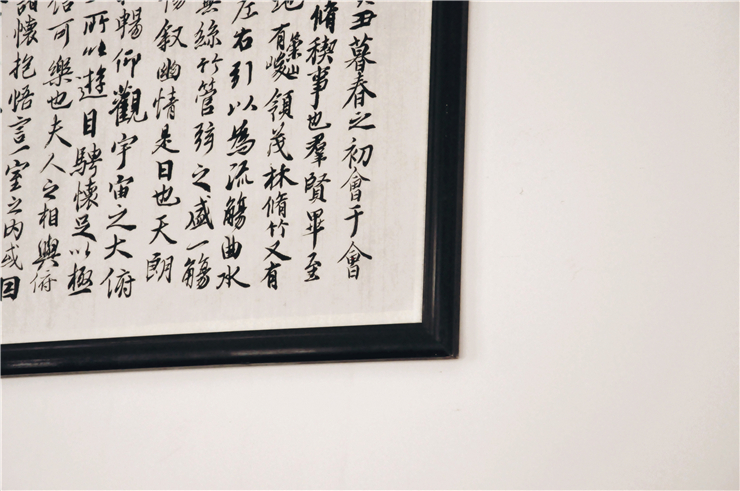 丑暮春之初會于會
脩稧事也羣賢畢至
地有崇山峻領茂林脩竹又有
左右引以為流觴曲水
無絲竹管弦之盛一觴
暢敘幽情是日也天朗
暢仰觀宇宙之大俯
所以遊目騁懷足以極
信可樂也夫人之相與俯
諸懷抱悟言一室之内或因